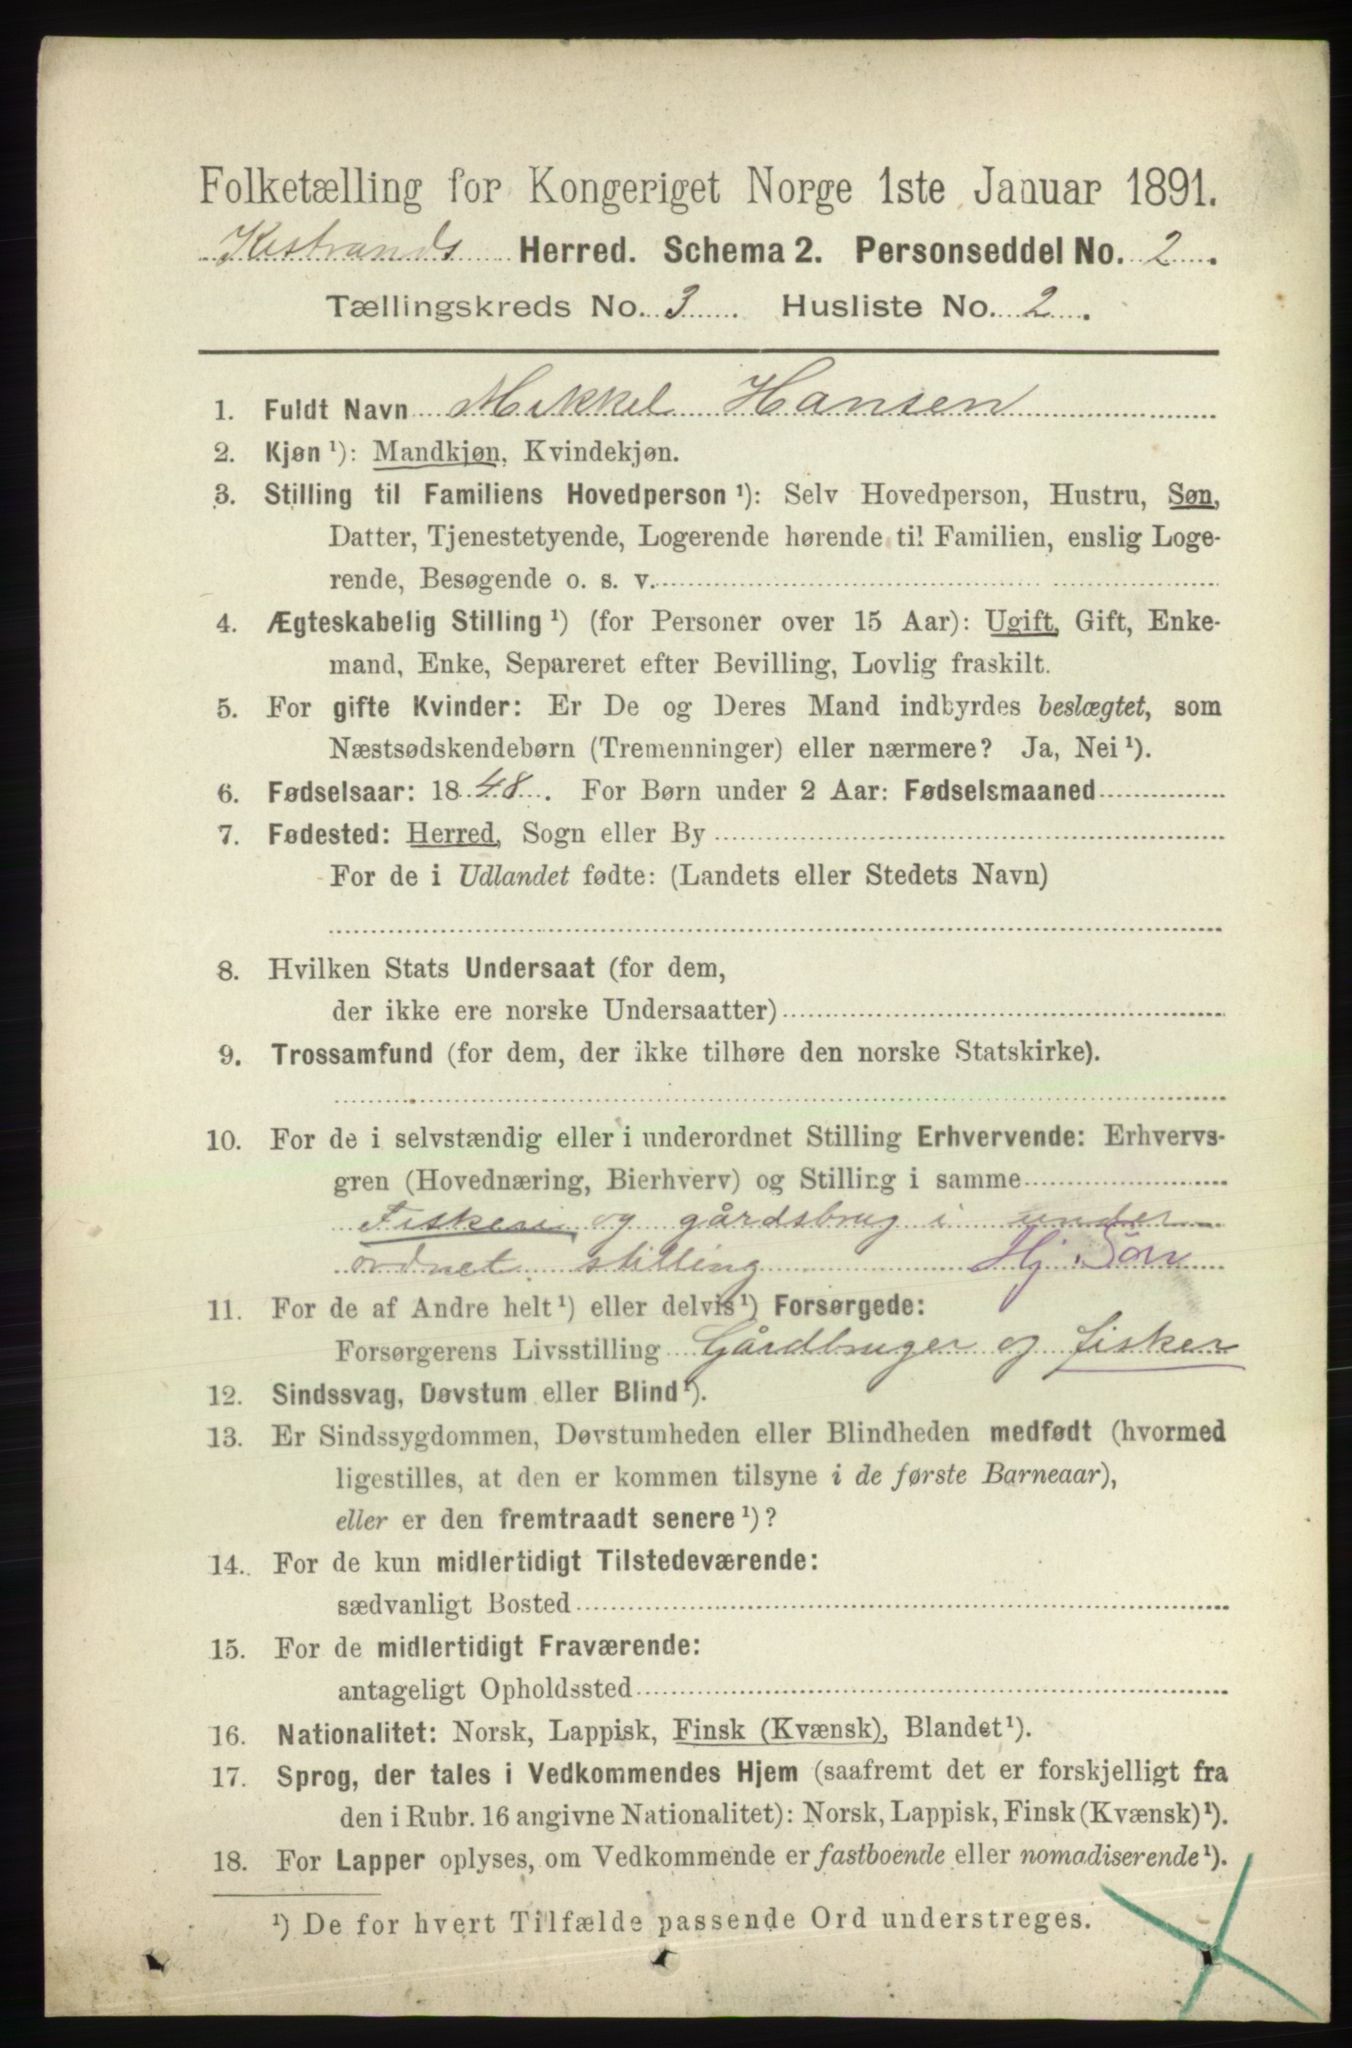 Folketælling for Kongeriget Norge 1ste Januar 1891.
Kistrands Herred. Schema 2. Personseddel No. 2.
Tællingskreds No. 3. Husliste No. 2.
1. Fuldt Navn Mikkel Hansen
2. Kjøn ¹): Mandkjøn, Kvindekjøn.
3. Stilling til Familiens Hovedperson ¹): Selv Hovedperson, Hustru, Søn,
Datter, Tjenestetyende, Logerende hørende til Familien, enslig Loge-
rende, Besøgende o. s. v.
4. Ægteskabelig Stilling ¹) (for Personer over 15 Aar): Ugift, Gift, Enke-
mand, Enke, Separeret efter Bevilling, Lovlig fraskilt.
5. For gifte Kvinder: Er De og Deres Mand indbyrdes beslægtet, som
Næstsødskendebørn (Tremenninger) eller nærmere? Ja, Nei ¹).
6. Fødselsaar: 1848. For Børn under 2 Aar: Fødselsmaaned
7. Fødested: Herred, Sogn eller By
For de i Udlandet fødte: (Landets eller Stedets Navn)
8. Hvilken Stats Undersaat (for dem,
der ikke ere norske Undersaatter)
9. Trossamfund (for dem, der ikke tilhøre den norske Statskirke).
10. For de i selvstændig eller i underordnet Stilling Erhvervende: Erhvervs-
gren (Hovednæring, Bierhverv) og Stilling i samme
Fiskeri og gårdsbrug i under
ordnet stilling Hj. Søn
11. For de af Andre helt ¹) eller delvis ¹) Forsørgede:
Forsørgerens Livsstilling Gårdbruger og fisker
12. Sindssvag, Døvstum eller Blind ¹).
13. Er Sindssygdommen, Døvstumheden eller Blindheden medfødt (hvormed
ligestilles, at den er kommen tilsyne i de første Barneaar),
eller er den fremtraadt senere ¹)?
14. For de kun midlertidigt Tilstedeværende:
sædvanligt Bosted
15. For de midlertidigt Fraværende:
antageligt Opholdssted
16. Nationalitet: Norsk, Lappisk, Finsk (Kvænsk), Blandet ¹).
17. Sprog, der tales i Vedkommendes Hjem (saafremt det er forskjelligt fra
den i Rubr. 16 angivne Nationalitet): Norsk, Lappisk, Finsk (Kvænsk) ¹).
18. For Lapper oplyses, om Vedkommende er fastboende eller nomadiserende ¹).
¹) De for hvert Tilfælde passende Ord understreges.